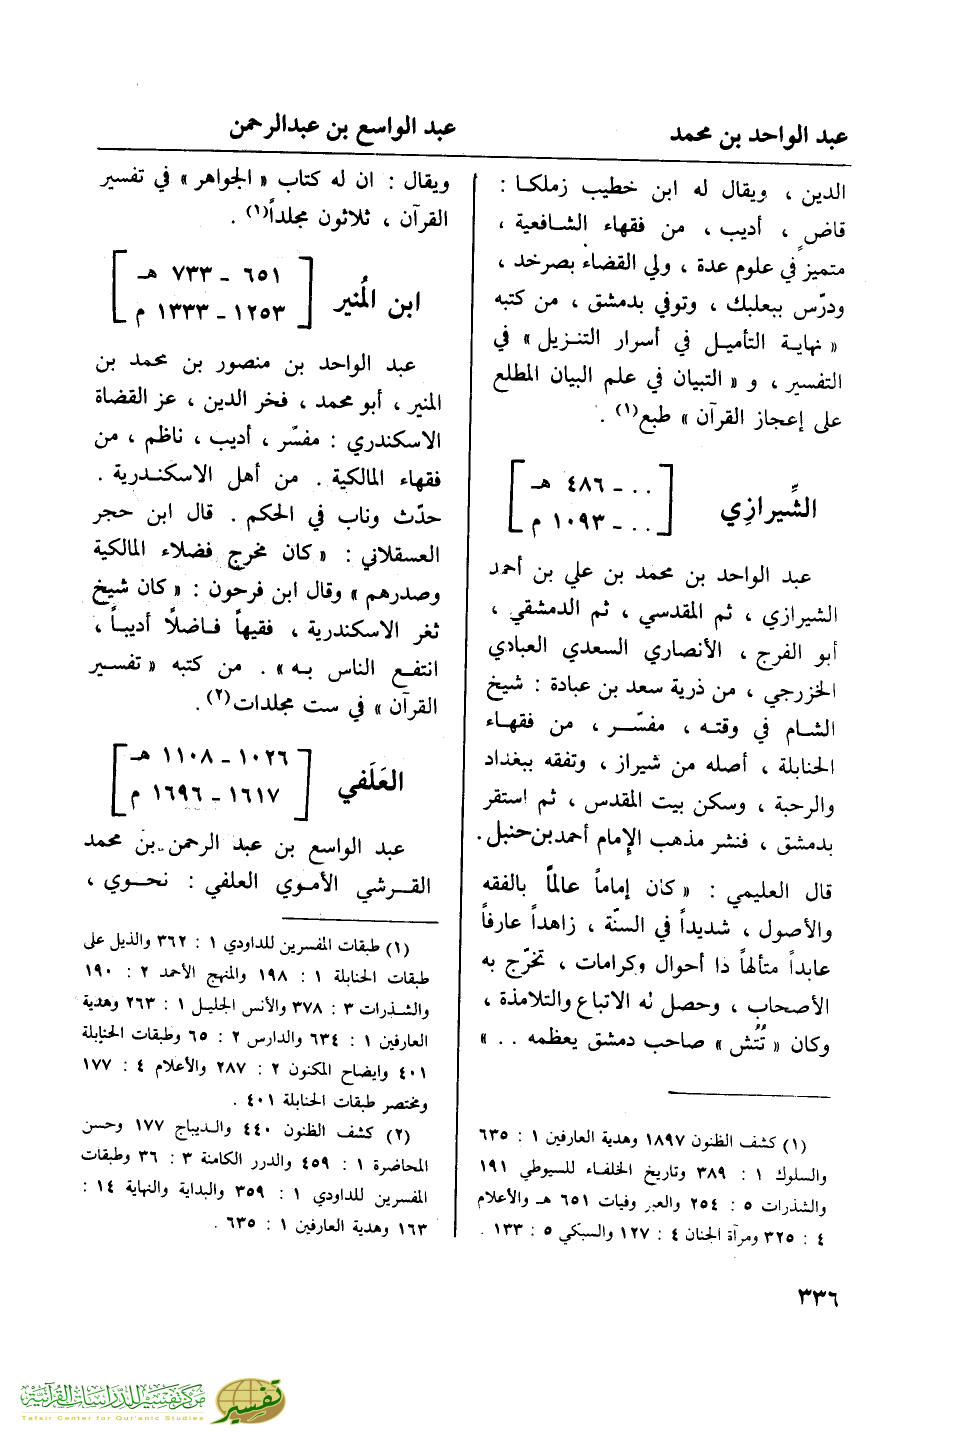 عبد الواحد بن محمد
عبد الواسع بن عبدالرحمن
الدين ، ويقال له ابن خطيب زملكا :
قاضٍ ، أديب ، من فقهاء الشافعية ،
متميز في علوم عدة ، ولي القضاء بصرخد ،
ودرّس ببعلبك ، وتوفي بدمشق ، من كتبه
« نهاية التأميل في أسرار التنزيل » في
التفسير ، و « التبيان في علم البيان المطلع
على إعجاز القرآن » طبع(١) .
الشِّيرازِي
[ .. ـ ٤٨٦ هـ
.. ـ ١٠٩٣ م ]
عبد الواحد بن محمد بن علي بن أحمد
الشيرازي ، ثم المقدسي ، ثم الدمشقي ،
أبو الفرج ، الأنصاري السعدي العبادي
الخزرجي ، من ذرية سعد بن عبادة : شيخ
الشام في وقته ، مفسّر ، من فقهاء
الحنابلة ، أصله من شيراز ، وتفقه ببغداد
والرحبة ، وسكن بيت المقدس ، ثم استقر
بدمشق ، فنشر مذهب الإمام أحمد بن حنبل .
قال العليمي : « كان إماماً عالماً بالفقه
والأصول ، شديداً في السنّة ، زاهداً عارفاً
عابداً متألهاً ذا أحوال وكرامات ، تخرّج به
الأصحاب ، وحصل له الاتباع والتلامذة ،
وكان « تُتُش » صاحب دمشق يعظمه . . »
(١) كشف الظنون ١٨٩٧ وهدية العارفين ١ : ٦٣٥
والسلوك ١ : ٣٨٩ وتاريخ الخلفاء للسيوطي ١٩١
والشذرات ٥ : ٢٥٤ والعبر وفيات ٦٥١ هـ والأعلام
٤ : ٣٢٥ ومرآة الجنان ٤ : ١٢٧ والسبكي ٥ : ١٣٣ .
ويقال : ان له كتاب « الجواهر » في تفسير
القرآن ، ثلاثون مجلداً(١) .
ابن المُنير
[ ٦٥١ ـ ٧٣٣ هـ
١٢٥٣ ـ ١٣٣٣ م ]
عبد الواحد بن منصور بن محمد بن
المنير ، أبو محمد ، فخر الدين ، عز القضاة
الاسكندري : مفسّر ، أديب ، ناظم ، من
فقهاء المالكية . من أهل الاسكندرية .
حدّث وناب في الحكم . قال ابن حجر
العسقلاني : « كان مخرج فضلاء المالكية
وصدرهم » وقال ابن فرحون : « كان شيخ
ثغر الاسكندرية ، فقيهاً فاضلاً أديباً ،
انتفع الناس به » . من كتبه « تفسير
القرآن » في ست مجلدات(٢) .
العَلَفي
[ ١٠٢٦ ـ ١١٠٨ هـ
١٦١٧ ـ ١٦٩٦ م ]
عبد الواسع بن عبد الرحمن بن محمد
القرشي الأموي العلفي : نحوي ،
(١) طبقات المفسرين للداودي ١ : ٣٦٢ والذيل على
طبقات الحنابلة ١ : ١٩٨ والمنهج الأحمد ٢ : ١٩٠
والشذرات ٣ : ٣٧٨ والأنس الجليل ١ : ٢٦٣ وهدية
العارفين ١ : ٦٣٤ والدارس ٢ : ٦٥ وطبقات الحنابلة
٤٠١ وايضاح المكنون ٢ : ٢٨٧ والأعلام ٤ : ١٧٧
ومختصر طبقات الحنابلة ٤٠١ .
(٢) كشف الظنون ٤٤٠ والديباج ١٧٧ وحسن
المحاضرة ١ : ٤٥٩ والدرر الكامنة ٣ : ٣٦ وطبقات
المفسرين للداودي ١ : ٣٥٩ والبداية والنهاية ١٤ :
١٦٣ وهدية العارفين ١ : ٦٣٥ .
٣٣٦
مركز تفسير للدراسات القرآنية
Tafsir Center for Qur'anic Studies
تفسير